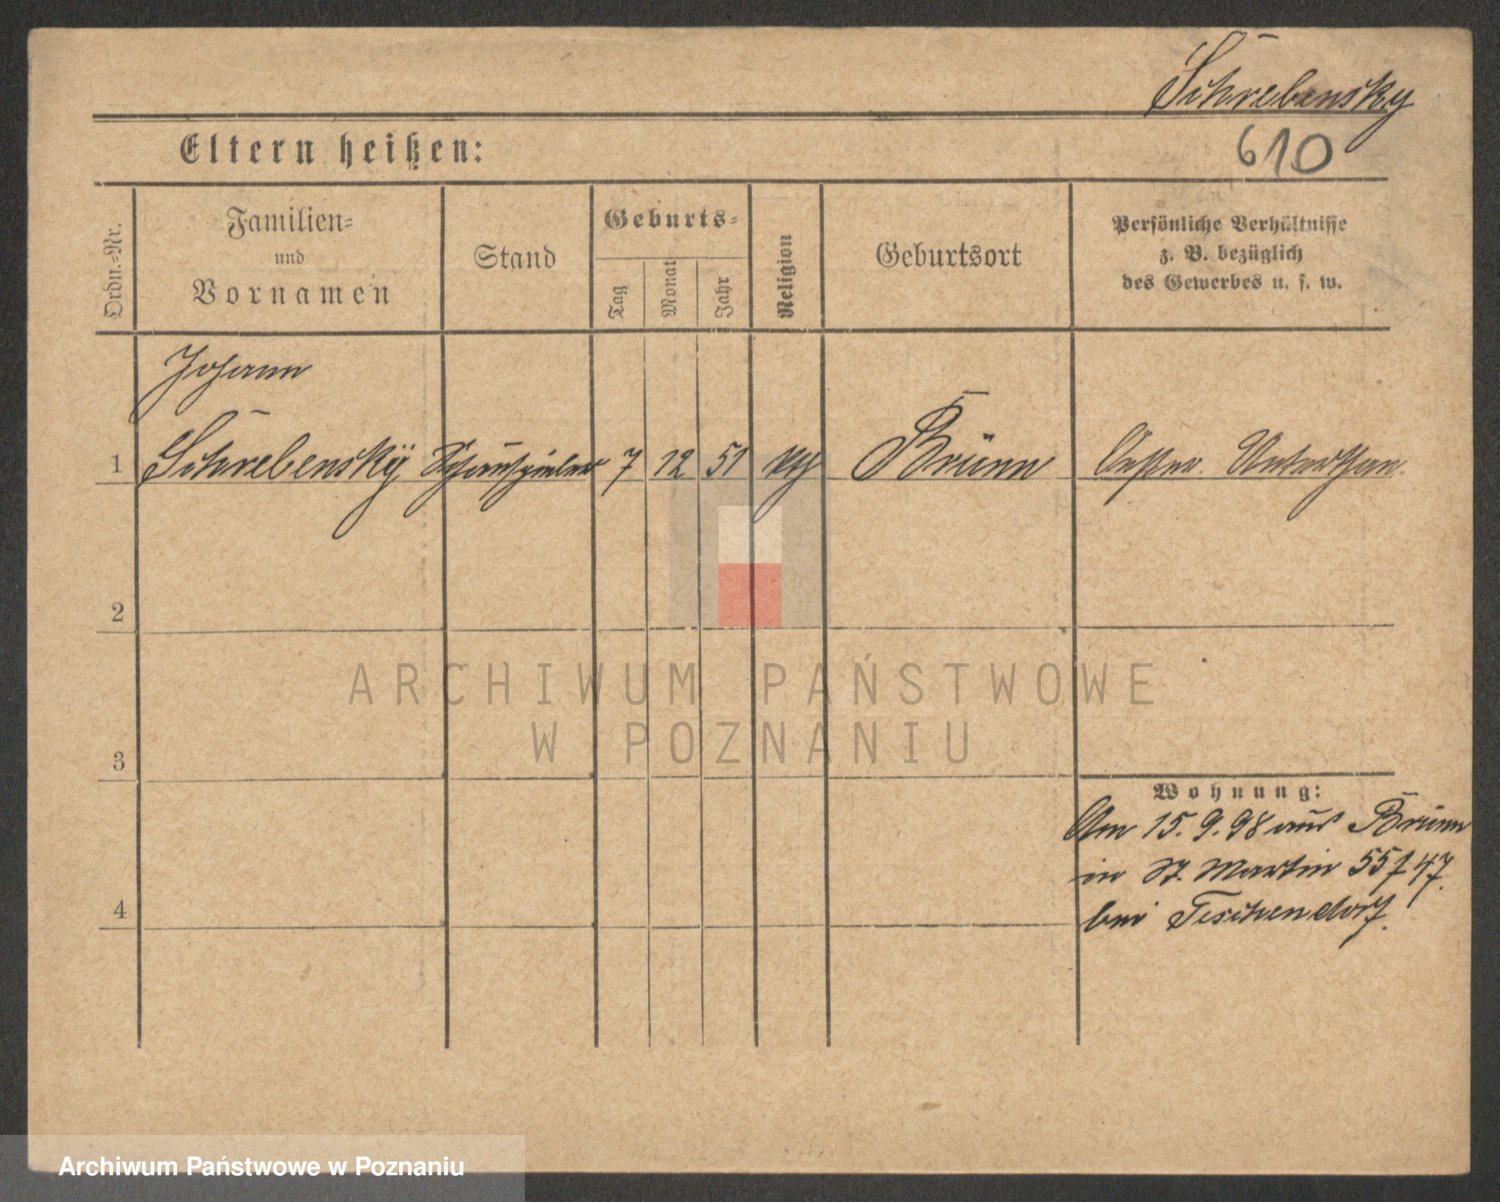 Schrebensky
610
Eltern heißen:
Ordn.-Nr.
Familien-
und
Vornamen
Stand
Geburts-
Tag
Monat
Jahr
Religion
Geburtsort
Persönliche Verhältnisse
z. B. bezüglich
des Gewerbes u. s. w.
Johann
1 Schrebensky Schauspieler 7 12 51 kth Brünn Oester. Unterthan.
2
3
Wohnung:
Am 15. 9. 98 aus Brünn
in St. Martin 55/47.
4 bei Teschendorf.
ARCHIWUM PAŃSTWOWE
W POZNANIU
Archiwum Państwowe w Poznaniu